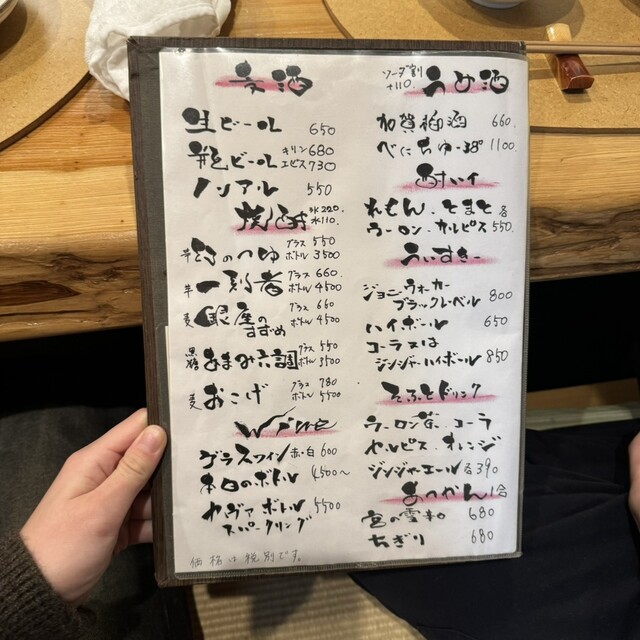 麦酒
生ビール 650
瓶ビール キリン 680
エビス 730
ノンアル 550
焼酎 氷220.
水110.
芋 幻のつゆ グラス 550
ボトル 3500
芋 一刻者 グラス 660.
ボトル 4500
麦 銀座のすずめ グラス 660
ボトル 4500
黒糖 あまみ六調 グラス 550
ボトル 3500
麦 おこげ グラス 780
ボトル 5500
Wine
グラスワイン 赤・白 600
本日のボトル 4500〜
カヴァ ボトル 5500
スパークリング
価格は税別です。
ソーダ割
+110.
うめ酒
加賀梅酒 660.
べにちゅー38° 1100.
酎ハイ
れもん.とまと 各
ウーロン.カルピス 550.
ういすきー
ジョニーウォーカー
ブラックレーベル 800
ハイボール 650
コーラ又は
ジンジャーハイボール 850
そふとドリンク
ウーロン茶.コーラ
カルピス.オレンジ
ジンジャーエール 各390
あつかん 1合
宮の雪 辛口 680
ちぎり 680